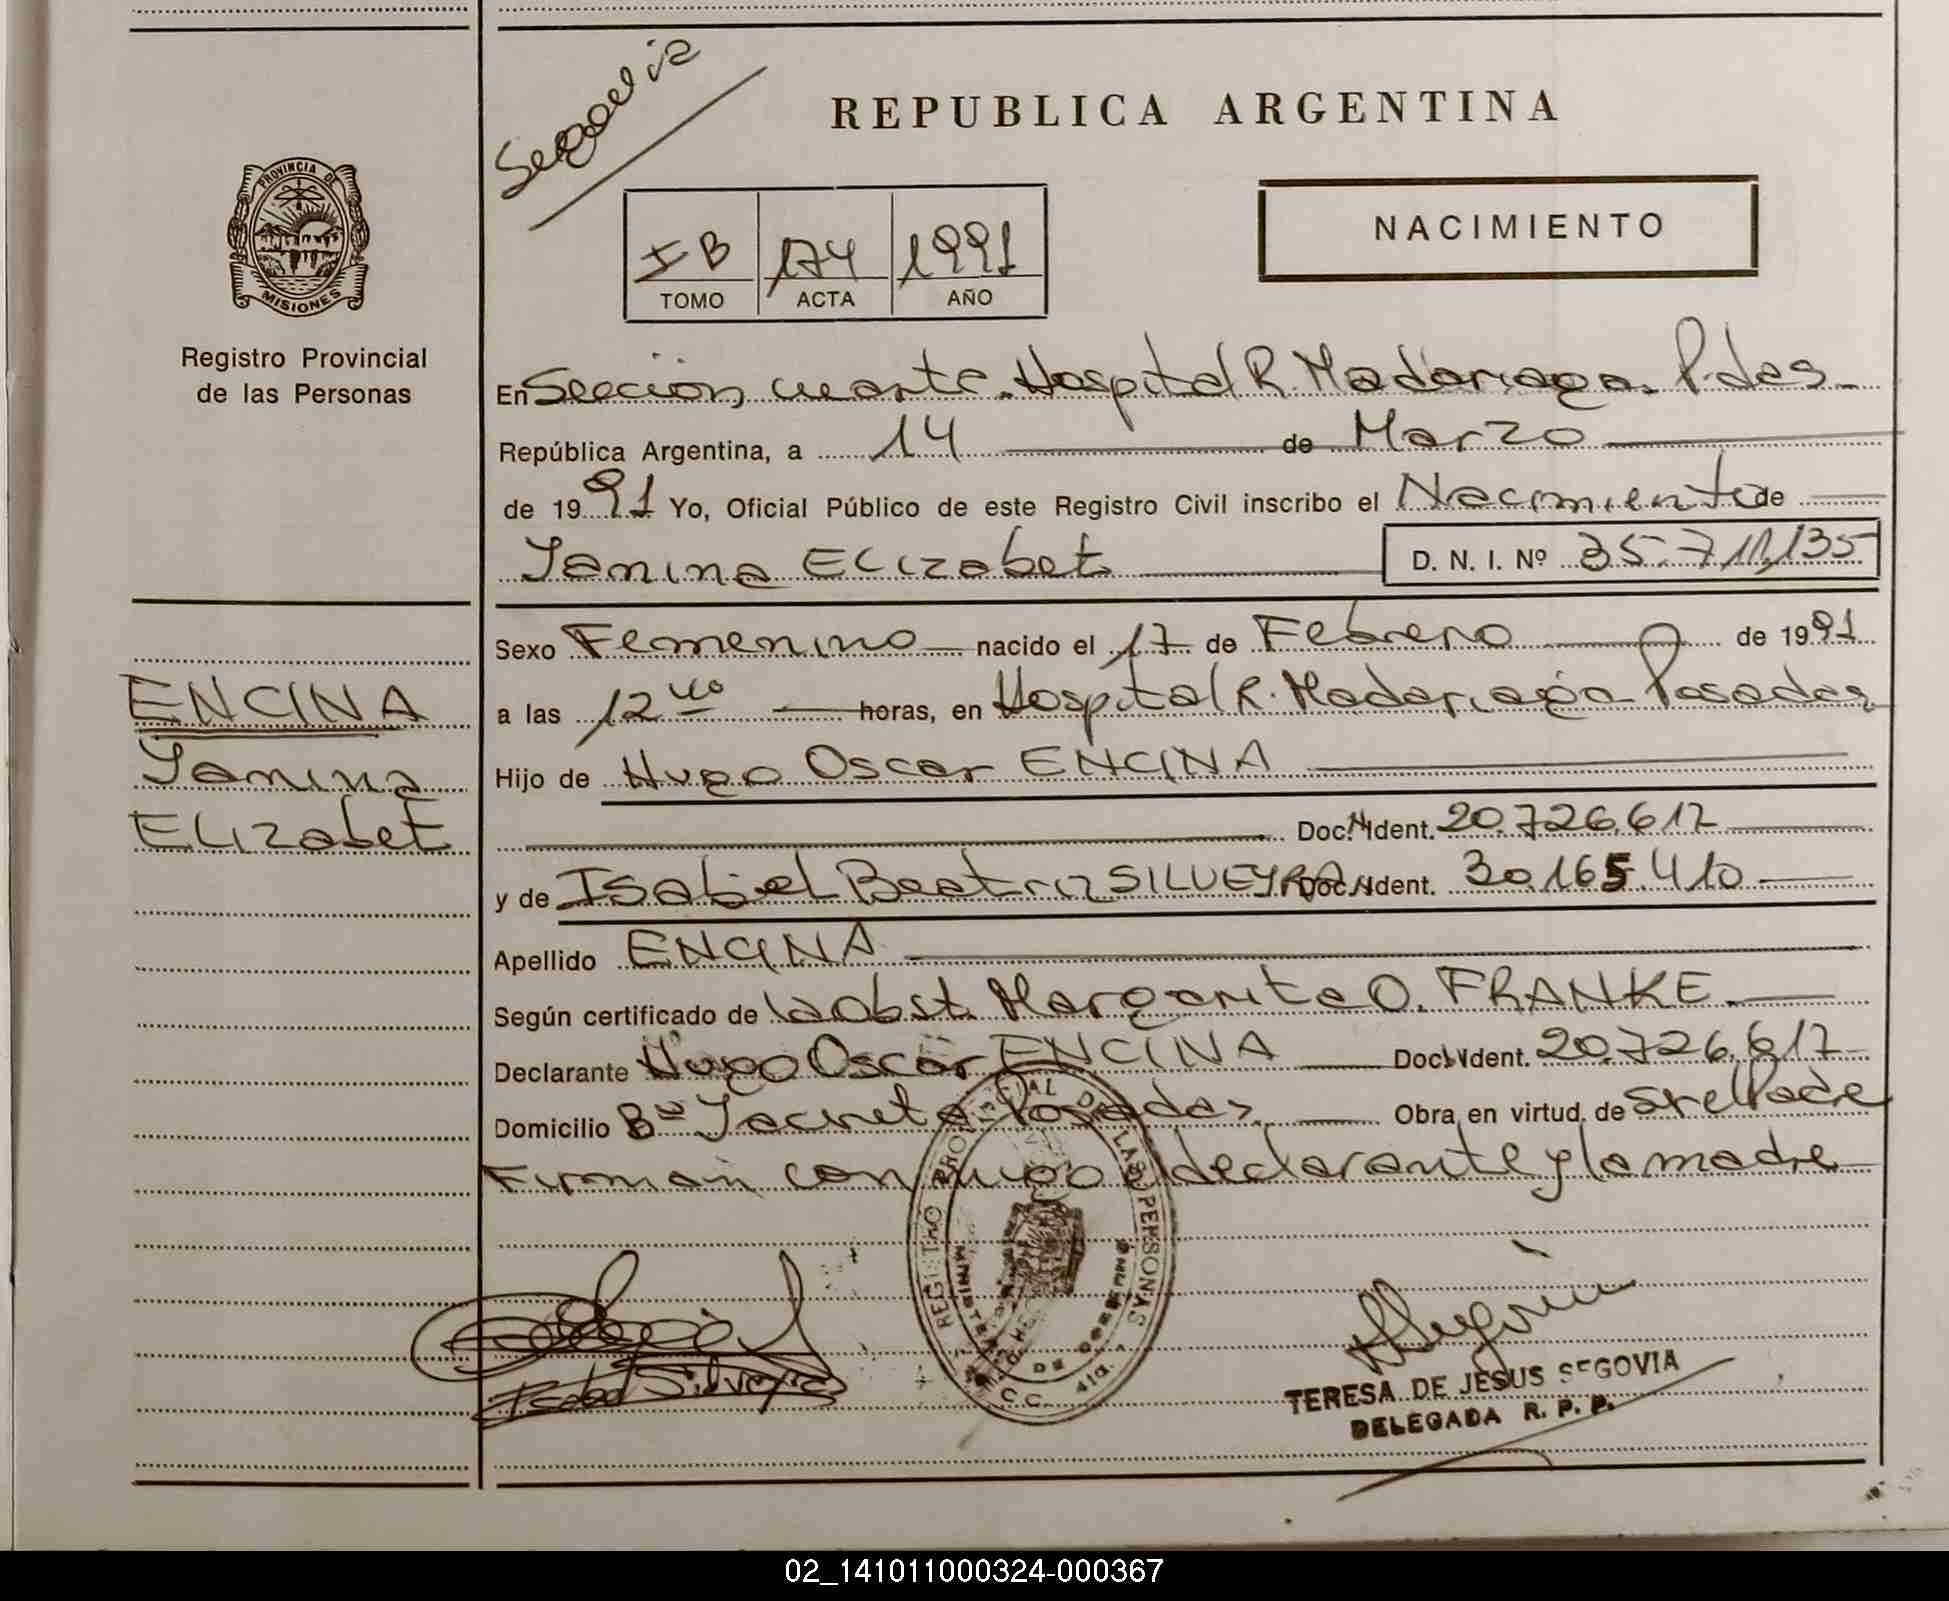 Segovia
REPUBLICA ARGENTINA
PROVINCIA DE
MISIONES
Registro Provincial
de las Personas
I B 174 1991
TOMO ACTA AÑO
NACIMIENTO
En Sección cuarta. Hospital R. Madariaga. P.das.
República Argentina, a 14 de Marzo
de 1991 Yo, Oficial Público de este Registro Civil inscribo el Nacimiento de
Yanina Elizabet D. N. I. Nº 35.711,135
Sexo Femenino nacido el 17 de Febrero de 1991
a las 12 horas, en Hospital R. Madariaga Posadas
Hijo de Hugo Oscar ENCINA
Doc. N. Ident. 20.726.617
y de Isabel Beatriz SILVEYRA Doc. N. Ident. 30.165.410
Apellido ENCINA
Según certificado de la Obst. Margarita O. FRANKE.
Declarante Hugo Oscar ENCINA Doc. N. Ident. 20.726.617
Domicilio Bº Yacyreta Posadas. Obra en virtud de ser el Padre
Firman conmigo declarante y la madre
ENCINA
Yanina
Elizabet
REGISTRO PROVINCIAL DE LAS PERSONAS
MINISTERIO DE GOBIERNO
Isabel Silveyra
TERESA DE JESUS SEGOVIA
DELEGADA R. P. P.
02_141011000324-000367